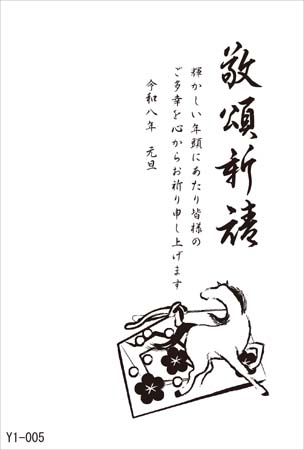 敬頌新禧
輝かしい年頭にあたり皆様の
ご多幸を心からお祈り申し上げます
令和八年　元旦
Y1-005